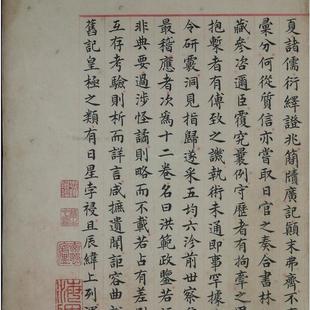 夏諸儒衍繹證兆簡牘廣記顛末弗齊不
彙分何從質信亦嘗取日官之奏合書林
藏參咨邇臣覆究曩例守歷者有拘牽之
抱槧者有傅致之譏執術未通即事罕據
令研覈洞見指歸遂采五均六沴前世察
最稽應者次為十二卷名曰洪範政鑒若
非典要過涉怪譎則略而不載若占有差別
互存考驗則析而詳言咸摭遺聞詎容曲
舊記皇極之類有日星孛祲且辰緯上列